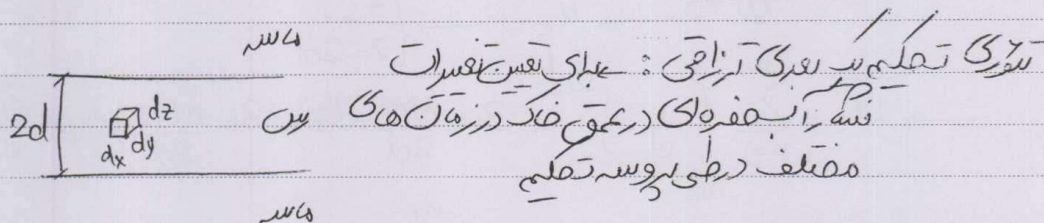 تئوری تحکیم یک بعدی ترزاقی : برای تعیین تغییرات
فشار آب حفره‌ای در عمق خاک در زمان های
مختلف در طی پروسه تحکیم
ماسه
2d
dz
dy
dx
رس
ماسه